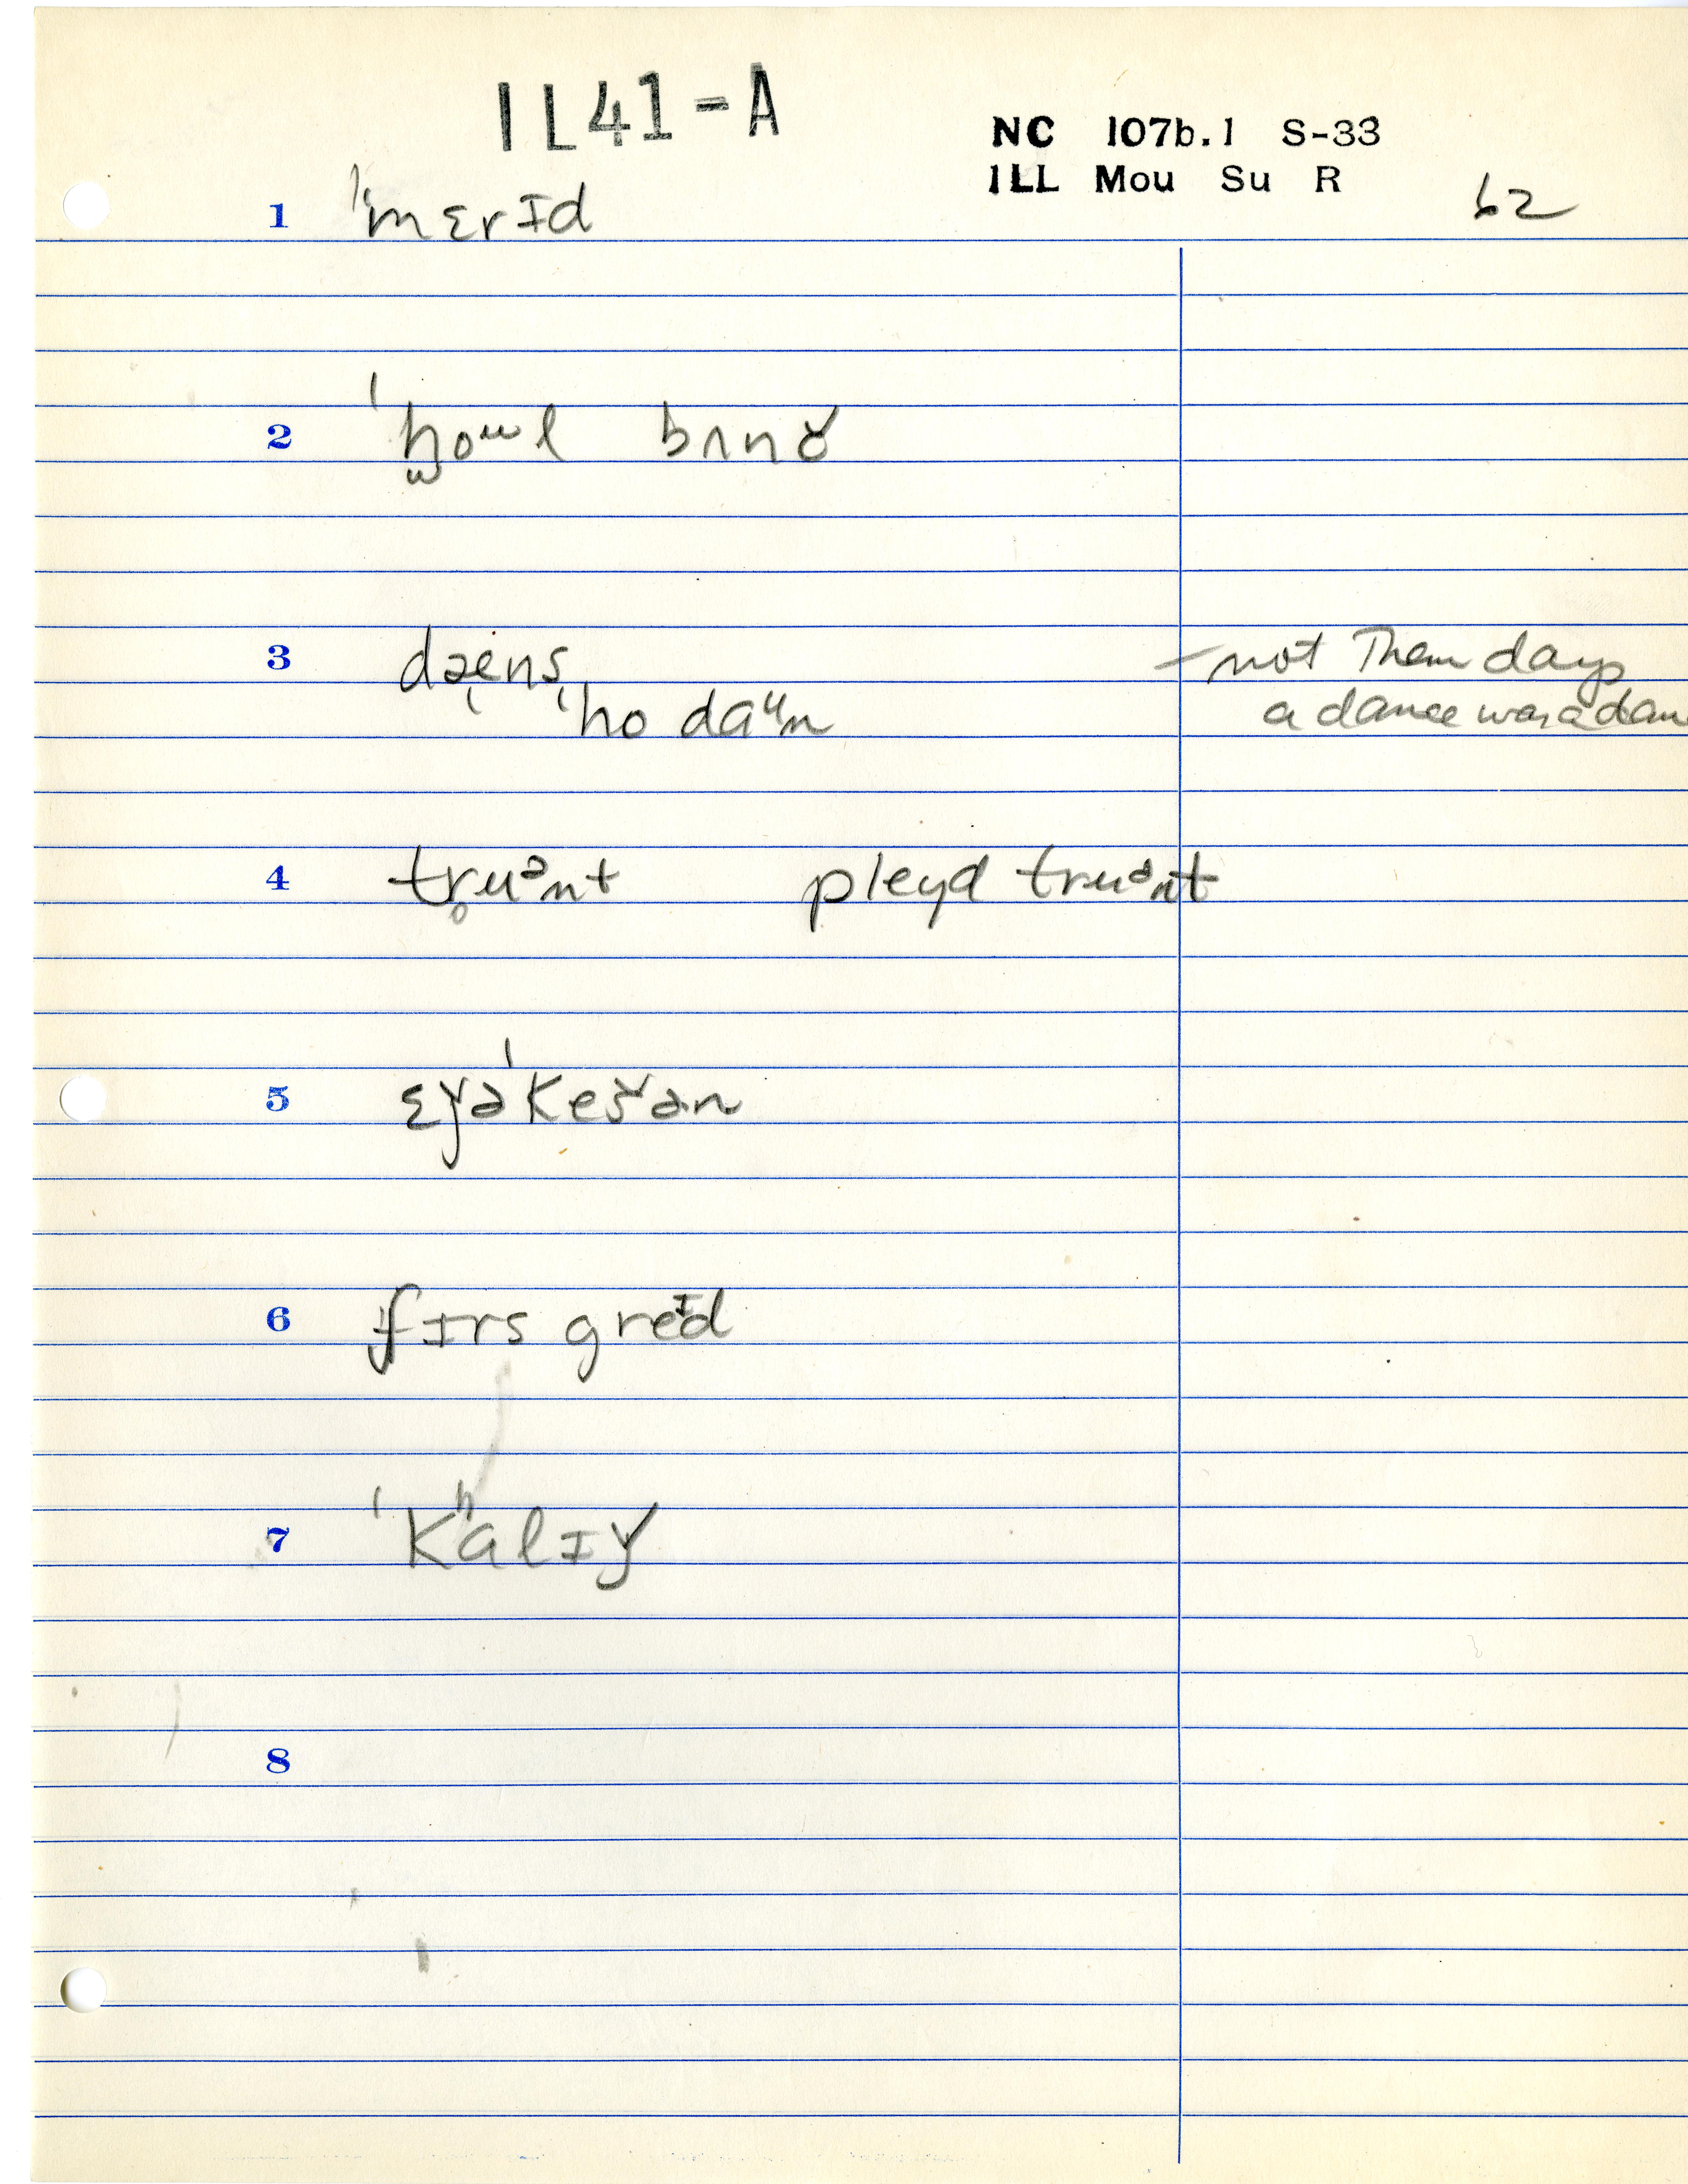 1L41-A
NC 107b.1 S-33
ILL Mou Su R
62
1 ˈmɛrɪd
2 ˈho̫ʷl bʌnč
3 dæ̨ens
ˈho daᵘn
not Them days
a dance was a dan
4 tr̥uᵊnt pleyd truᵊnt
5 ɛǰəˈkešən
6 fɪrs greᶦd
7 ˈkʰalɪǰ
8